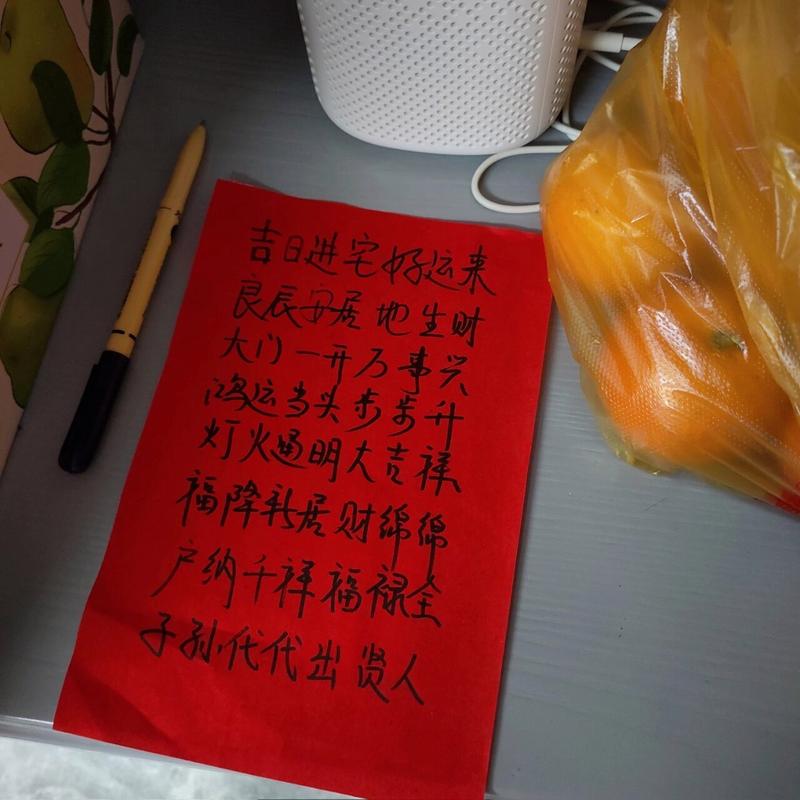 吉日进宅好运来
良辰安居地生财
大门一开万事兴
鸿运当头步步升
灯火通明大吉祥
福降新居财绵绵
户纳千祥福禄全
子孙代代出贤人